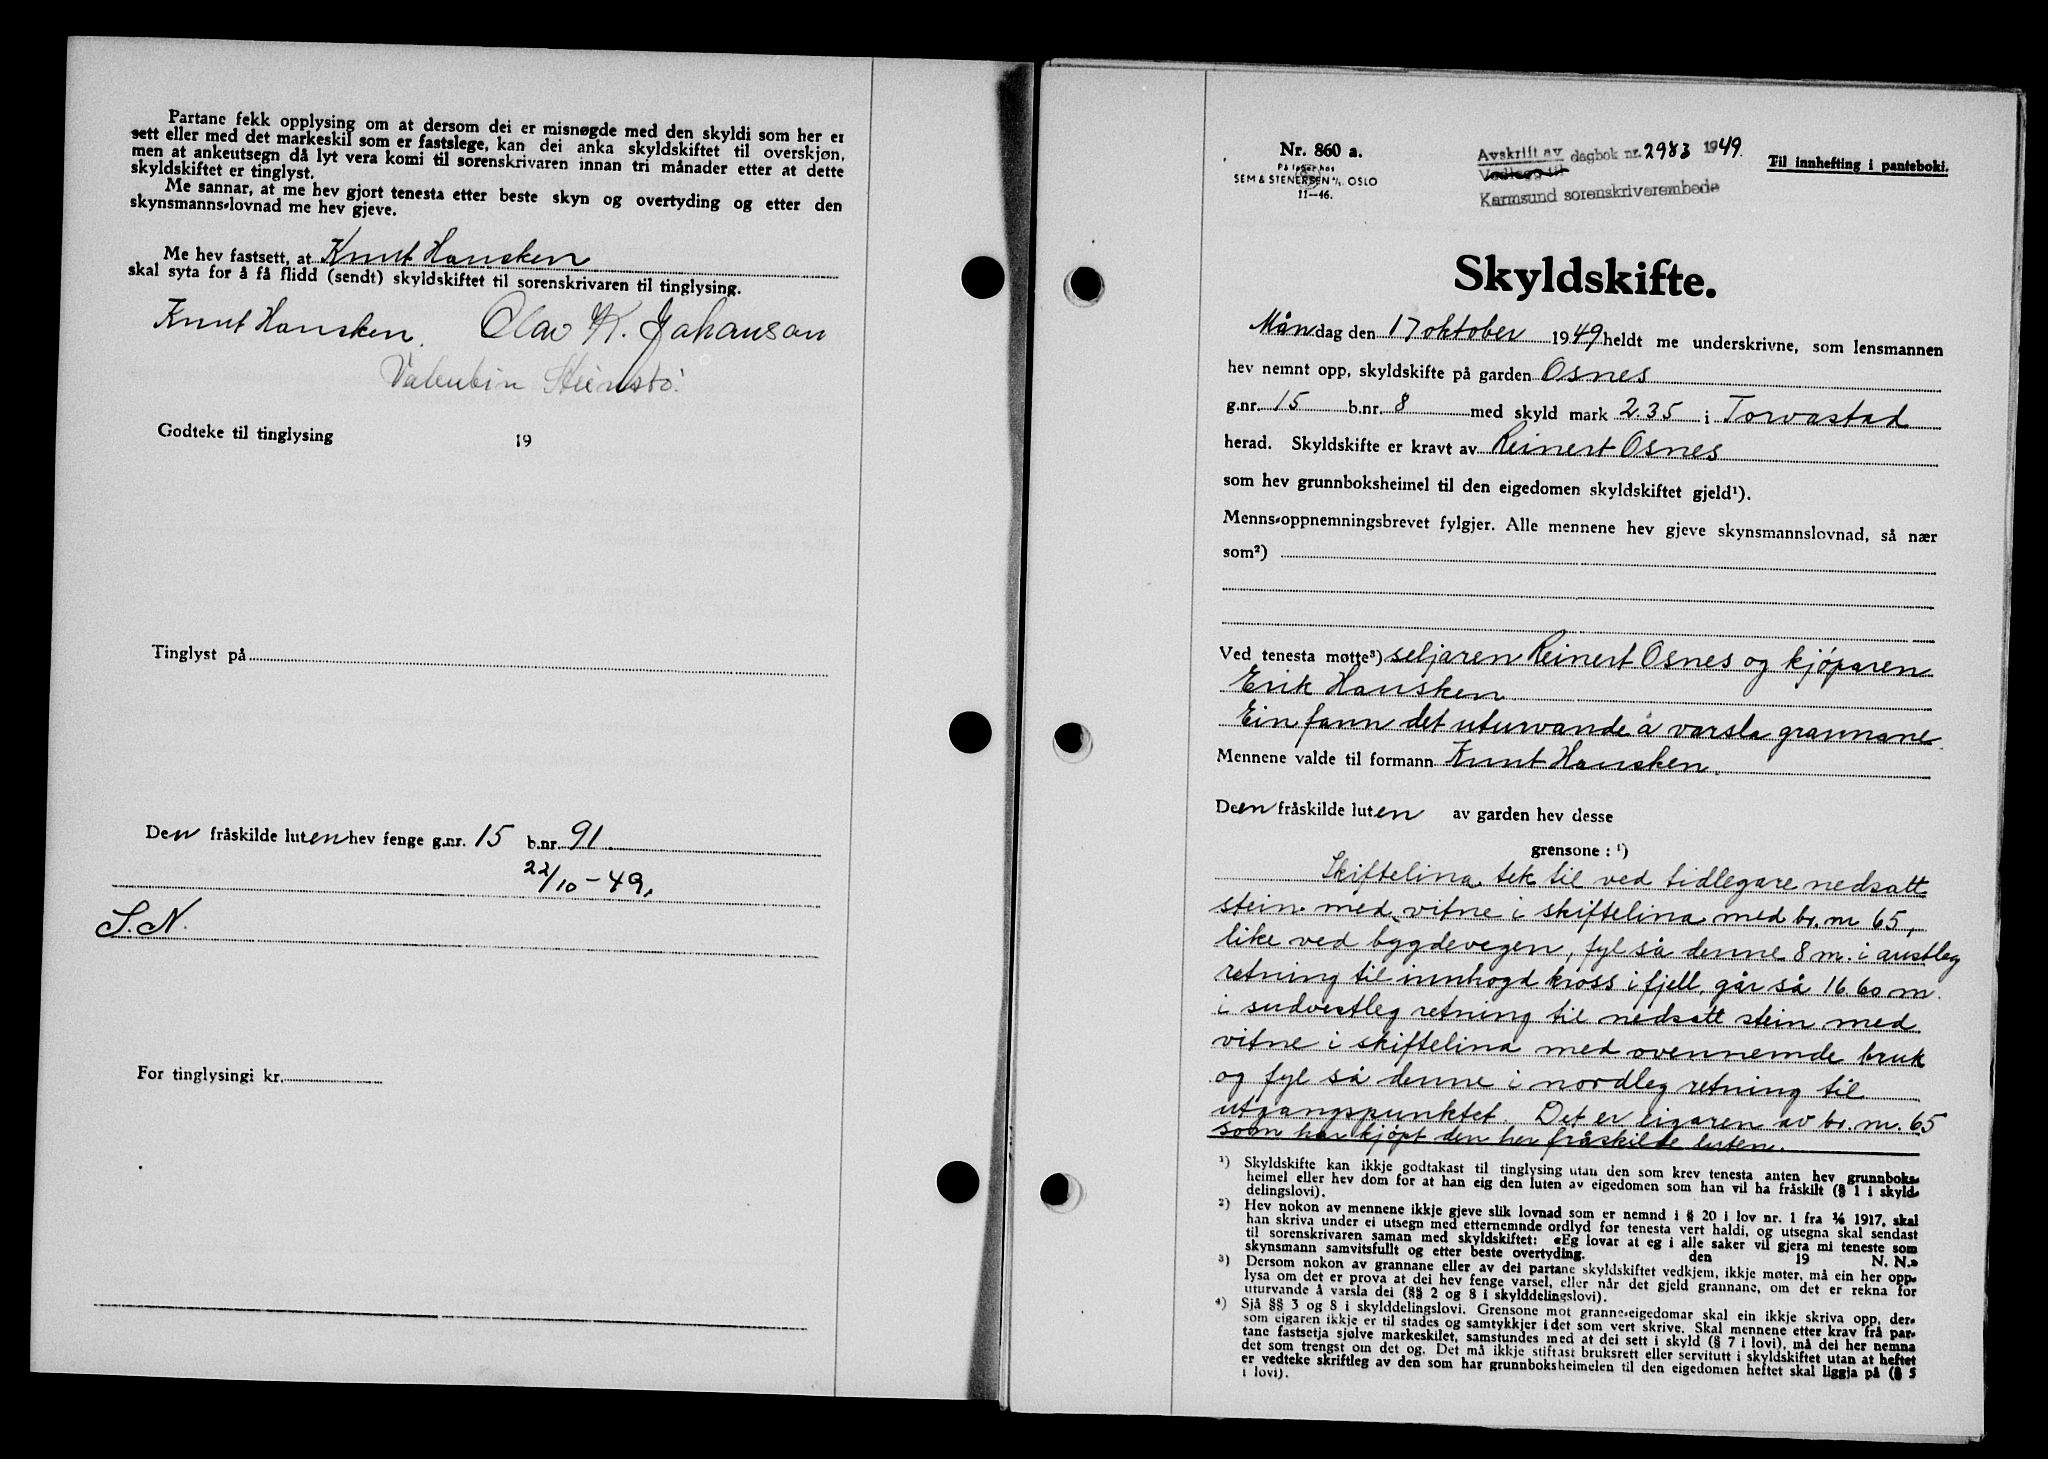 Partane fekk opplysing om at dersom dei er misnøgde med den skyldi som her er
sett eller med det markeskil som er fastslege, kan dei anka skyldskiftet til overskjøn,
men at ankeutsegn då lyt vera komi til sorenskrivaren innan tri månader etter at dette
skyldskiftet er tinglyst.
Me sannar, at me hev gjort tenesta etter beste skyn og overtyding og etter den
skynsmanns-lovnad me hev gjeve.
Me hev fastsett, at Knut Hausken
skal syta for å få flidd (sendt) skyldskiftet til sorenskrivaren til tinglysing.
Knut Hausken. Olav K. Johanson
Valentin Steinstö.
Godteke til tinglysing 19
Tinglyst på
Den fråskilde luten hev fenge g.nr. 15 b.nr. 91.
22/10-49.
S.N.
For tinglysingi kr.
Nr. 860 a.
På lager hos
SEM & STENERSEN A/S OSLO
11-46.
Avskrift av dagbok nr. 2983 1949.
Vedlegg til
Karmsund sorenskriverembede
Til innhefting i panteboki.
Skyldskifte.
Måndag den 17 oktober 1949 heldt me underskrivne, som lensmannen
hev nemnt opp, skyldskifte på garden Osnes
g.nr. 15 b.nr. 8 med skyld mark 2.35 i Torvastad
herad. Skyldskifte er kravt av Reinert Osnes
som hev grunnboksheimel til den eigedomen skyldskiftet gjeld¹).
Menns-oppnemningsbrevet fylgjer. Alle mennene hev gjeve skynsmannslovnad, så nær
som²)
Ved tenesta møtte³) seljaren Reinert Osnes og kjöparen
Erik Hausken
Ein fann det uturvande å varsla grannane.
Mennene valde til formann Knut Hausken.
Den fråskilde luten av garden hev desse
grensone: ¹)
Skiftelina tek til ved tidlegare nedsatt
stein med vitne i skiftelina med br. nr 65,
like ved bygdevegen, fyl så denne 8 m. i austleg
retning til innhogd kross i fjell, går så 16.60 m.
i sudvestleg retning til nedsatt stein med
vitne i skiftelina med ovennemde bruk
og fyl så denne i nordleg retning til
utgangspunktet. Det er eigaren av br. nr. 65
som har kjöpt den her fråskilde luten.
¹) Skyldskifte kan ikkje godtakast til tinglysing utan den som krev tenesta anten hev grunnboks-
heimel eller hev dom for at han eig den luten av eigedomen som han vil ha fråskilt (§ 1 i skyld-
delingslovi).
²) Hev nokon av mennene ikkje gjeve slik lovnad som er nemnd i § 20 i lov nr. 1 fra 1/6 1917, skal
han skriva under ei utsegn med etternemnde ordlyd før tenesta vert haldi, og utsegna skal sendast
til sorenskrivaren saman med skyldskiftet: «Eg lovar at eg i alle saker vil gjera mi teneste som
skynsmann samvitsfullt og etter beste overtyding. den 19 N. N.»
³) Dersom nokon av grannane eller av dei partane skyldskiftet vedkjem, ikkje møter, må ein her opp-
lysa om det er prova at dei hev fenge varsel, eller når det gjeld grannane, om det er rekna for
uturvande å varsla dei (§§ 2 og 8 i skylddelingslovi).
⁴) Sjå §§ 3 og 8 i skylddelingslovi. Grensone mot granne-eigedomar skal ein ikkje skriva opp, der-
som eigaren ikkje er til stades og samtykkjer i det som vert skrive. Skal mennene etter krav frå par-
tane fastsetja sjølve markeskilet, samstundes med at dei sett i skyld (§ 7 i lovi), må dei her nemna
det som trengst om det og. Det må ikkje stiftast bruksrett eller servitutt i skyldskiftet utan at heftet
er vedteke skriftleg av den som har grunnboksheimelen til den eigedomen heftet skal liggja på (§ 5
i lovi).